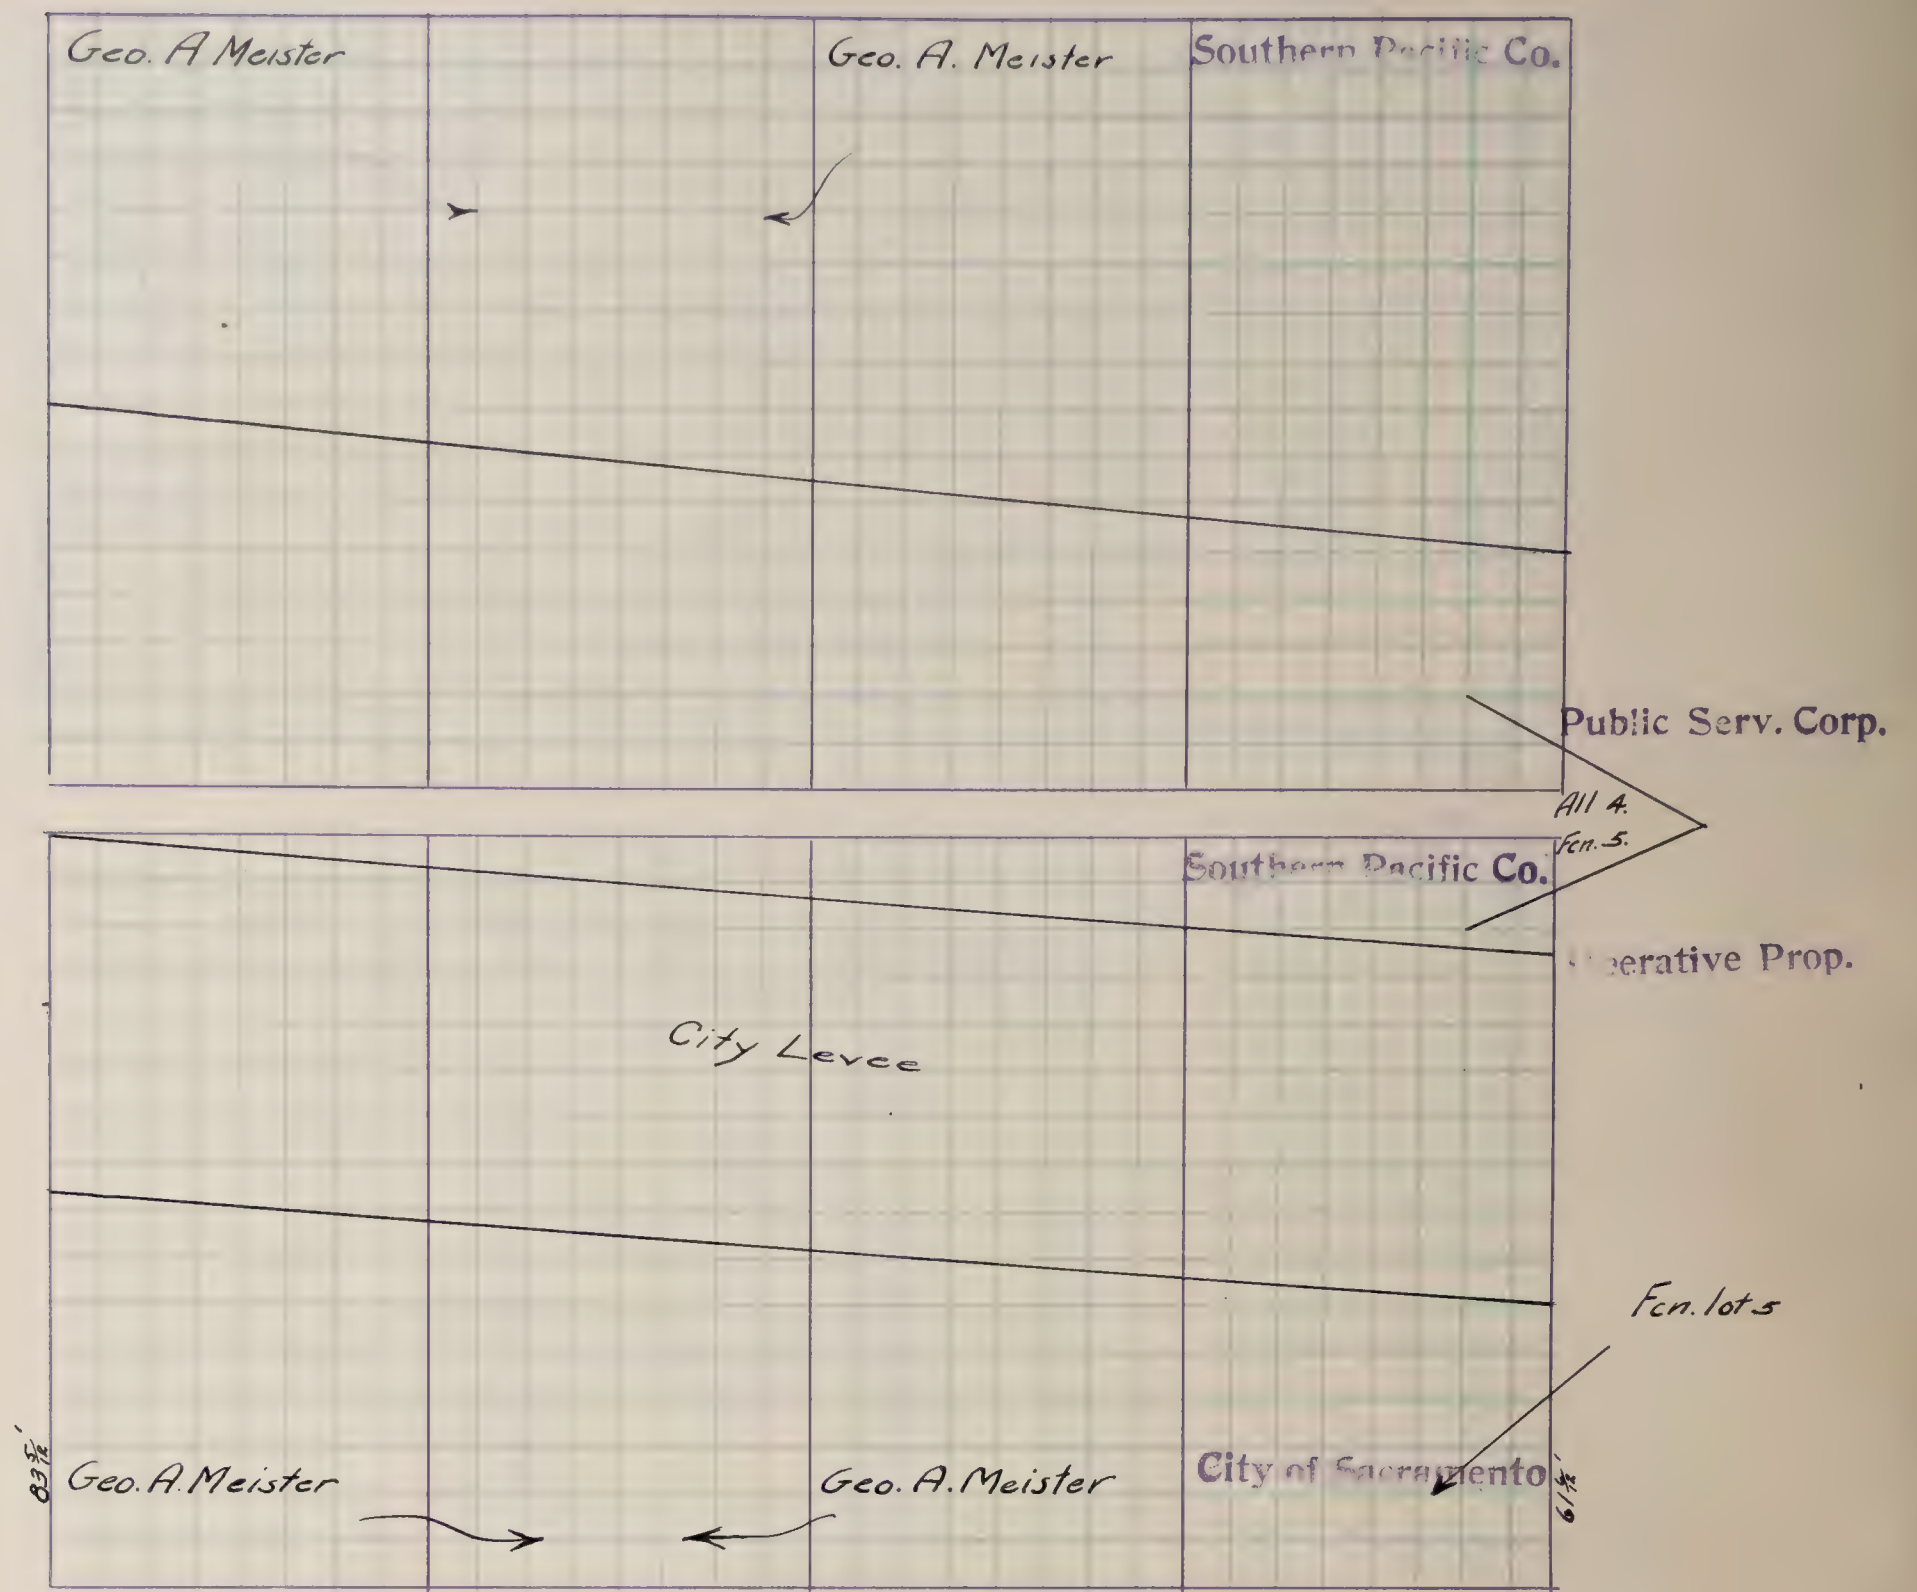 Geo. A Meister
Geo. A. Meister
Southern Pacific Co.
Public Serv. Corp.
All 4.
Fcn. 5.
Southern Pacific Co.
Operative Prop.
City Levee
Fcn. lot 5
83 5/12'
Geo. A. Meister
Geo. A. Meister
City of Sacramento